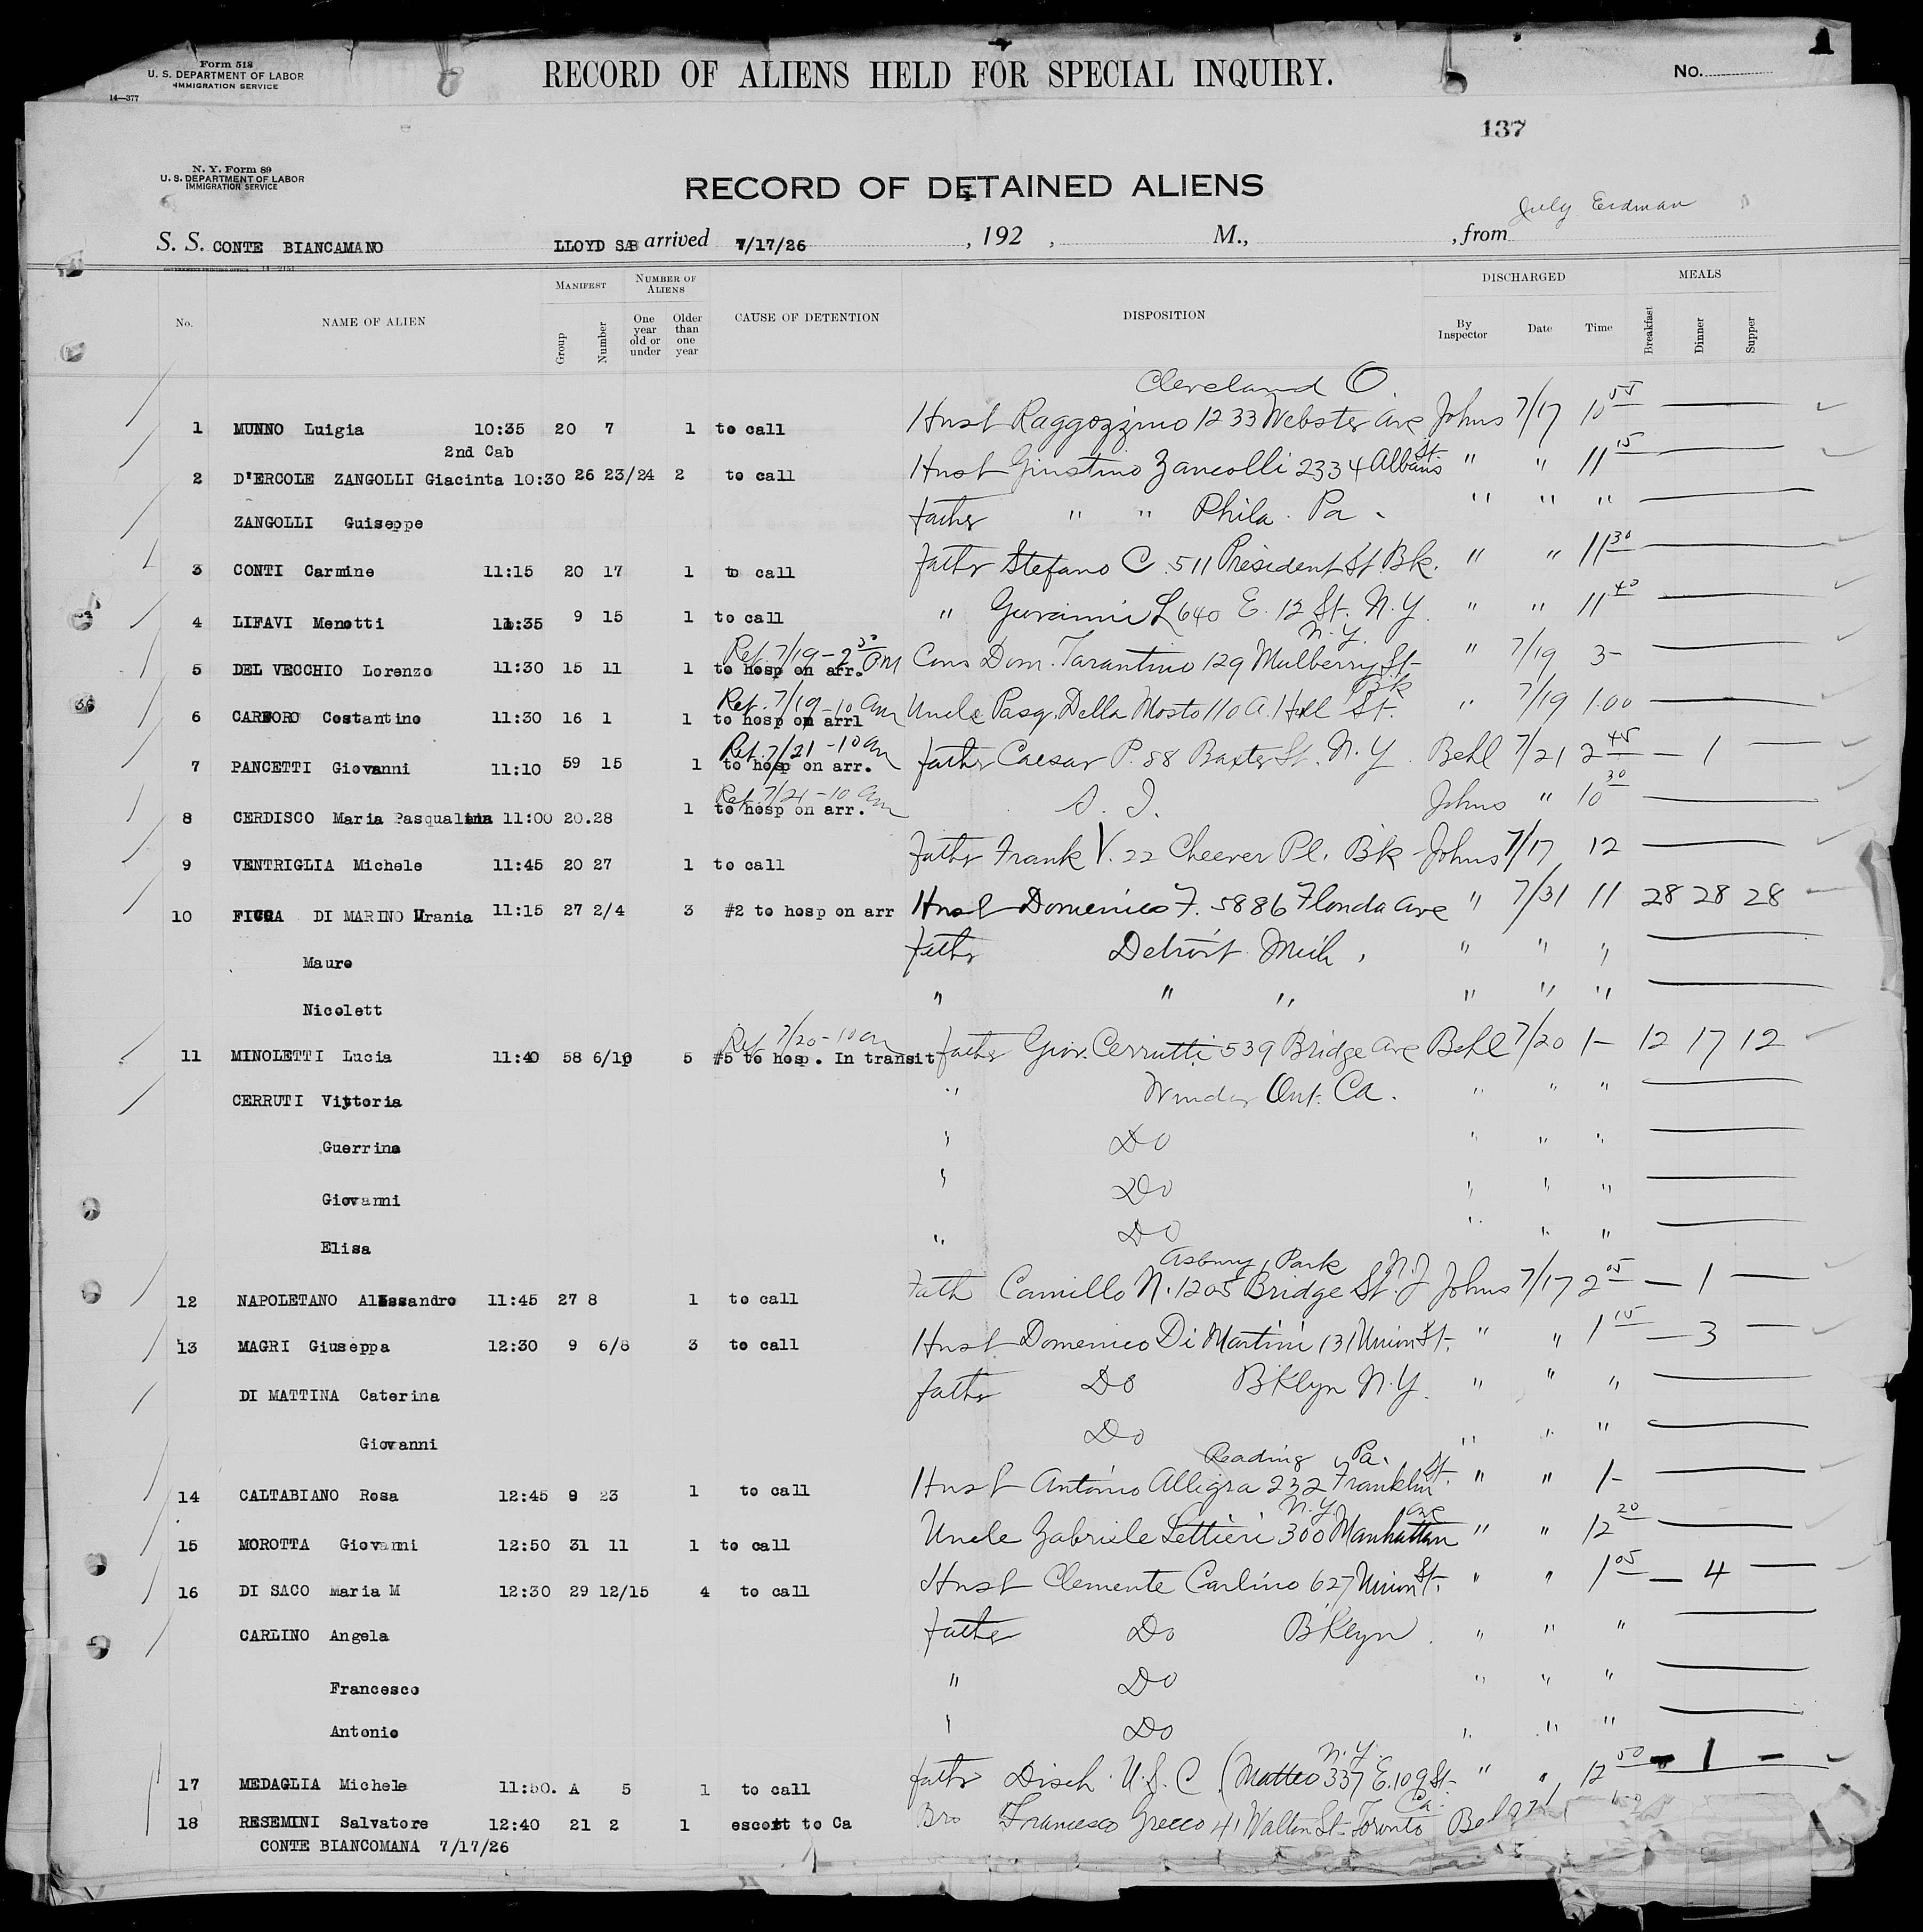 Form 518
U. S. DEPARTMENT OF LABOR
IMMIGRATION SERVICE
14—377
RECORD OF ALIENS HELD FOR SPECIAL INQUIRY.
No.
137
N. Y. Form 89
U. S. DEPARTMENT OF LABOR
IMMIGRATION SERVICE
RECORD OF DETAINED ALIENS
S. S. CONTE BIANCAMANO LLOYD SAB arrived 7/17/26, 192 , M., , from July Erdman
GOVERNMENT PRINTING OFFICE 14-2151
No. NAME OF ALIEN MANIFEST Group Number NUMBER OF ALIENS One year old or under Older than one year CAUSE OF DETENTION DISPOSITION DISCHARGED By Inspector Date Time MEALS Breakfast Dinner Supper
Cleveland O.
1 MUNNO Luigia 10:35 20 7 1 to call Husb Raggozzino 1233 Webster Ave Johns 7/17 10 55
2nd Cab
2 D'ERCOLE ZANGOLLI Giacinta 10:30 26 23/24 2 to call Husb Giustino Zancolli 2334 St. " " 11 15
ZANGOLLI Guiseppe Father " " Phila. Pa. " " "
3 CONTI Carmine 11:15 20 17 1 to call Father Stefano C. 511 President St. Bk. " " 11 30
4 LIFAVI Menotti 11:35 9 15 1 to call " L 640 E. 12 St. N.Y. " " 11 40
Ret. 7/19 - 2 30 PM N.Y.
5 DEL VECCHIO Lorenzo 11:30 15 11 1 to hosp on arr. Cous Dom. Tarantino 129 Mulberry St " 7/19 3-
Ret. 7/19 - 10 am Bk
6 CARFORO Costantino 11:30 16 1 1 to hosp on arrl Uncle Pasq. Della Mosto 110 A. Hall St. " 7/19 1.00
Ret. 7/21 - 10 am
7 PANCETTI Giovanni 11:10 59 15 1 to hosp on arr. Father Caesar P. 58 Baxter St. N.Y. Behl 7/21 2 45 — 1 —
Ret. 7/21 - 10 am
8 CERDISCO Maria Pasqualina 11:00 20.28 1 to hosp on arr. S. I. Johns " 10 30
9 VENTRIGLIA Michele 11:45 20 27 1 to call Father Frank V. 22 Cheever Pl. Bk Johns 7/17 12
10 FICCA DI MARINO Urania 11:15 27 2/4 3 #2 to hosp on arr Husb Domenico F. 5886 Florida Ave " 7/31 11 28 28 28
Mauro Father Detroit Mich. " " "
Nicolett " " " " " "
Ret 7/20 - 10 am
11 MINOLETTI Lucia 11:40 58 6/10 5 #5 to hosp. In transit Father Giov. Cerrutti 539 Bridge Ave Behl 7/20 1- 12 17 12
CERRUTI Vittoria " Windsor Ont. Ca. " " "
Guerrina " Do " " "
Giovanni " Do " " "
Elisa " Do " " "
Asbury Park N.J.
12 NAPOLETANO Alessandro 11:45 27 8 1 to call Fath Camillo N. 1205 Bridge St. Johns 7/17 2 05 — 1 —
13 MAGRI Giuseppa 12:30 9 6/8 3 to call Husb Domenico Di Martini 131 Union St. " " 1 15 — 3 —
DI MATTINA Caterina Father Do Bklyn N.Y. " " "
Giovanni Do " " "
Reading Pa.
14 CALTABIANO Rosa 12:45 9 23 1 to call Husb Antonio Alligra 232 Franklin St. " " 1-
N.Y.
15 MOROTTA Giovanni 12:50 31 11 1 to call Uncle Gabriele Lettieri 300 Manhattan Ave " " 12 20
16 DI SACO Maria M 12:30 29 12/15 4 to call Husb Clemente Carlino 627 Union St. " " 1 05 — 4 —
CARLINO Angela Father Do Bklyn. " " "
Francesco " Do " " "
Antonio " Do " " "
N.Y.
17 MEDAGLIA Michele 11:50. A 5 1 to call Father Disch. U.S.C. (Matteo 337 E. 109 St " " 12 50 - 1 -
Ca.
18 RESEMINI Salvatore 12:40 21 2 1 escort to Ca Bro Francesco Grecco 41 Walton St. Toronto
CONTE BIANCOMANA 7/17/26